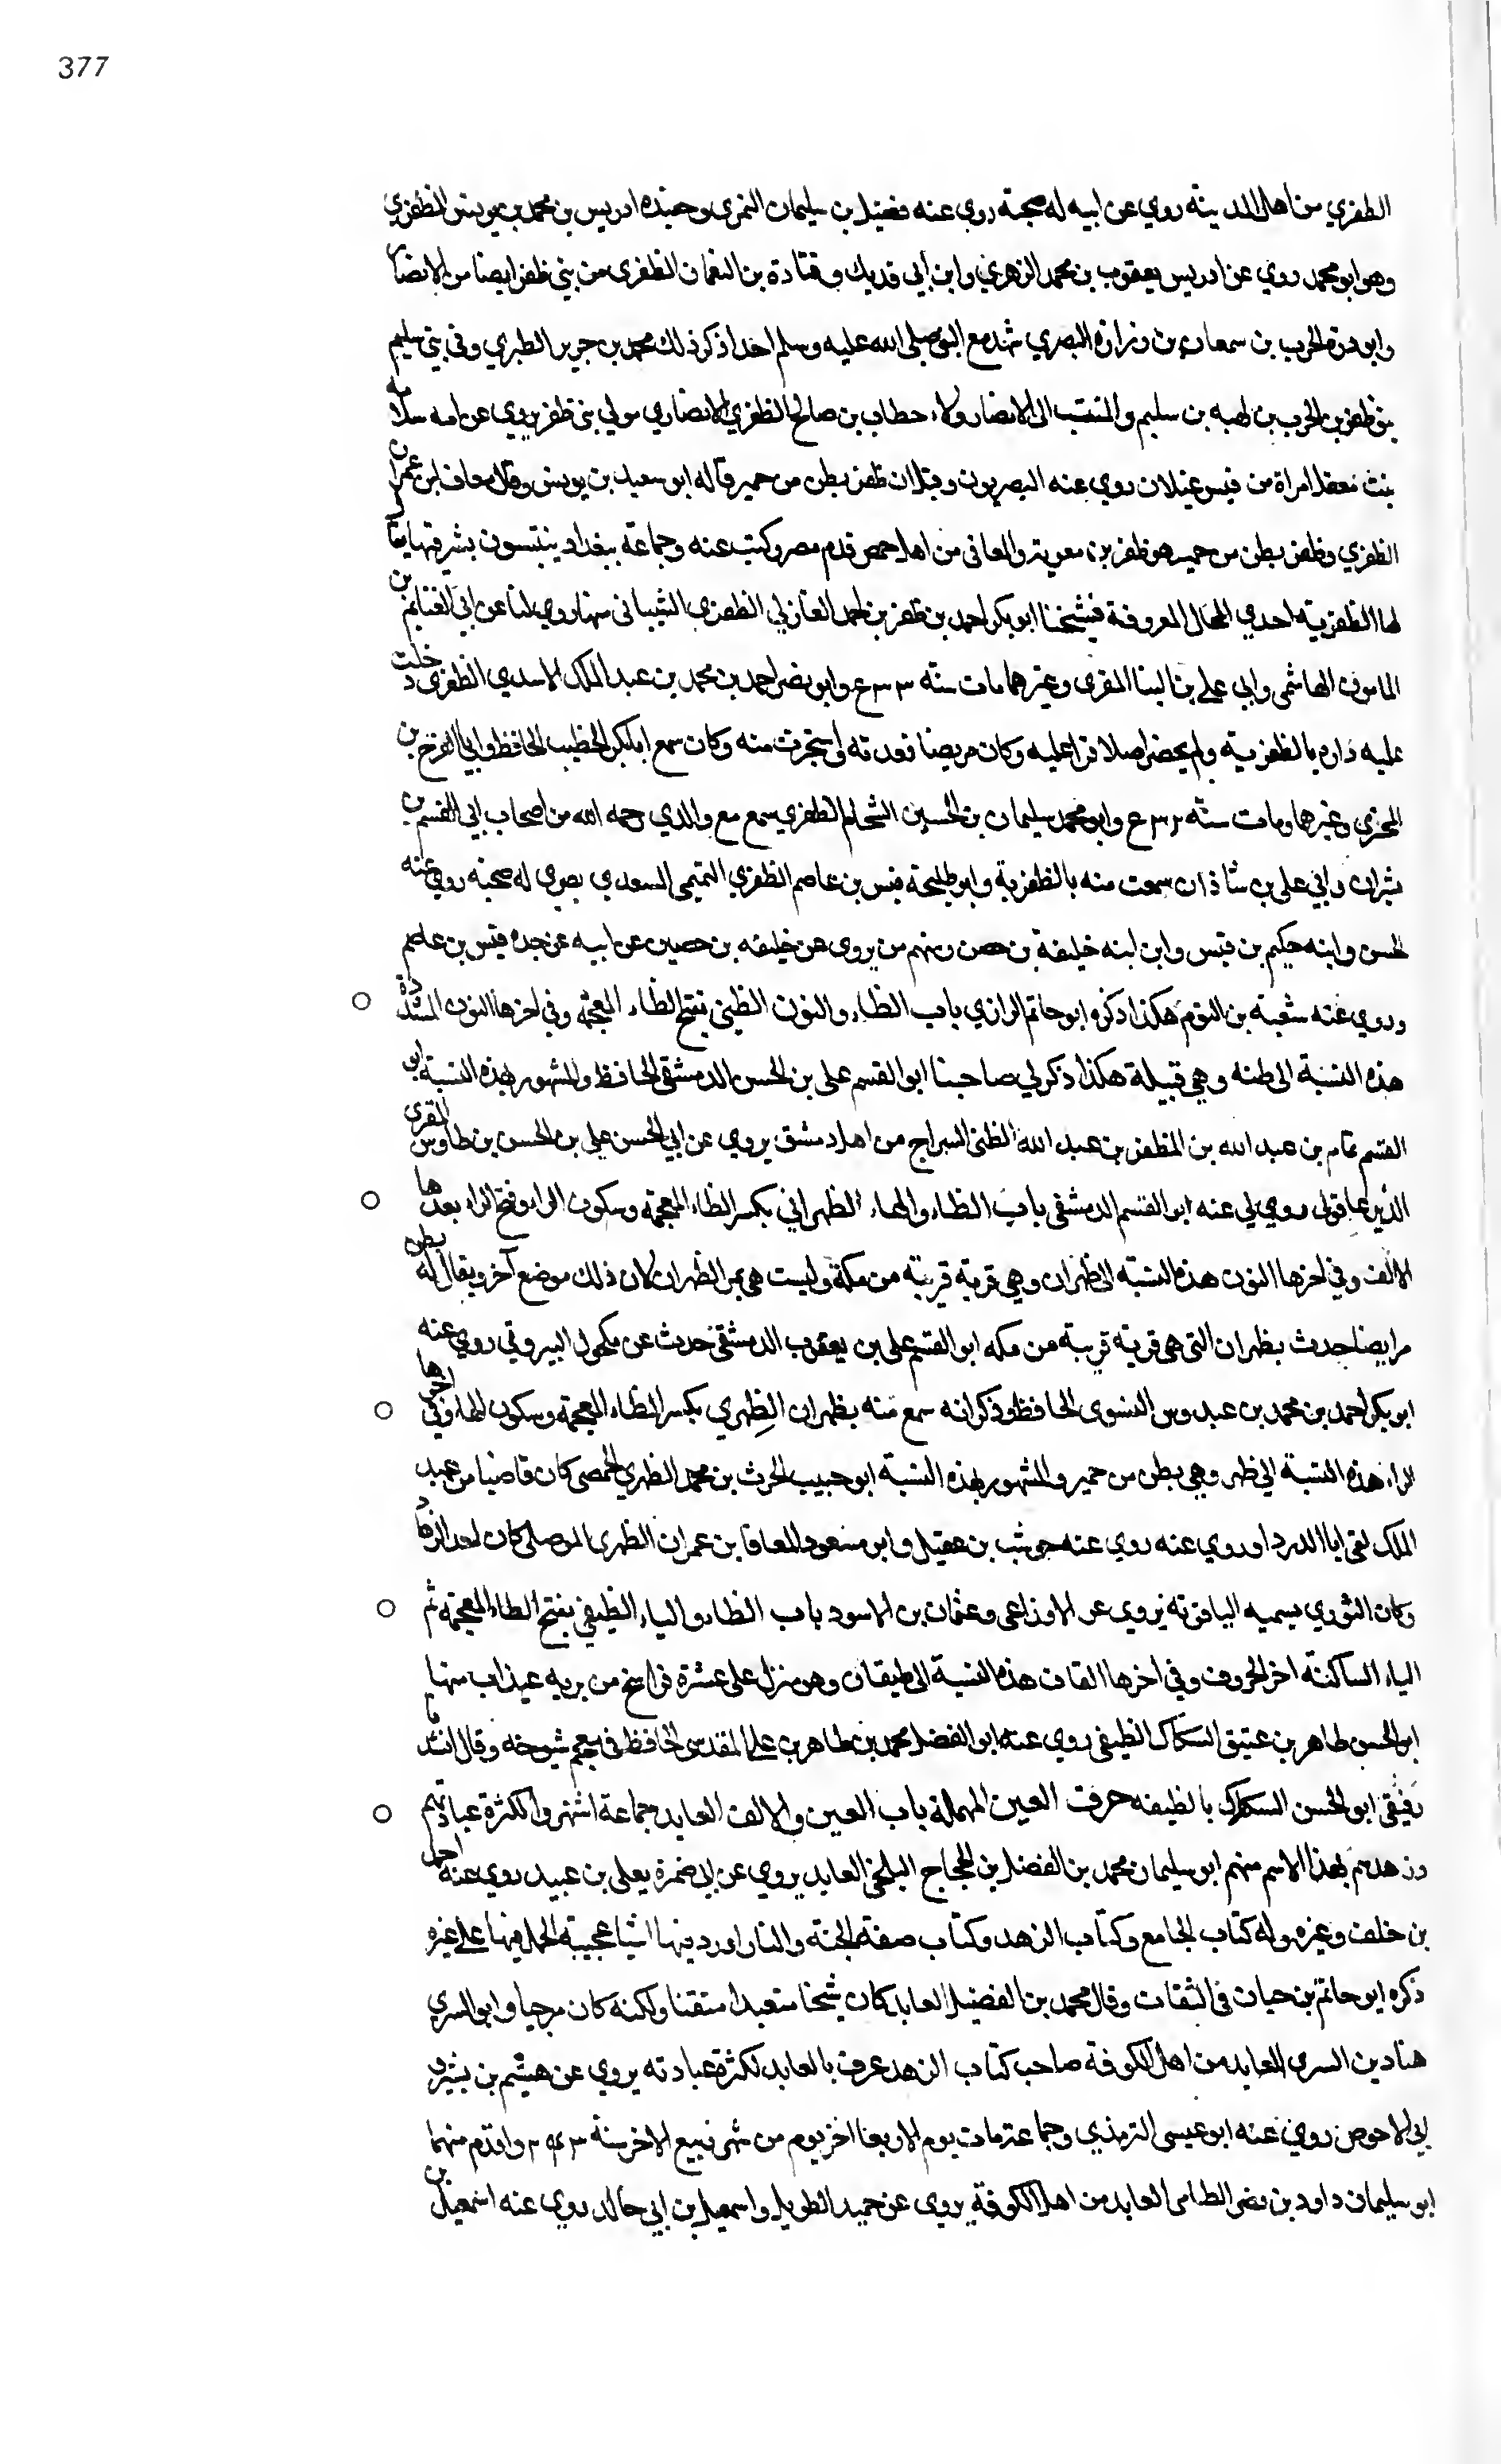 377
الظفري من اهل المدينة روي عن ابيه له صحبة روي عنه فضيل بن سليمان النمري وحفيده ادريس بن محمد بن يونس الظفري
وهو ابو محمد روي عن ادريس يعقوب بن محمد الزهري وابن ابي فديك وقتادة بن النعمان الظفري من بني ظفر ايضا من الانصار
وابو درة الحرب بن سمعان بن زرارة البصري شهد مع النبي صلي الله عليه وسلم احدا ذكر ذلك محمد بن جرير الطبري وفي بني سليم
بنو ظفر بن الحرب بن لهبه بن سليم والمنتسب الى الانصار ولاء حطاب بن صالح الظفري الانصاري مولي بني ظفر يروي عن امه سلامه
بنت معقل امراة من قيس عيلان روي عنه البصريون وقيل ان ظفر بطن من حمير قاله ابو سعيد بن يونس وقال معاف ابن عمران
الظفري وظفر بطن من حمير هو ظفر بن معوية والمعافى من اهل حمص قدم مصر وكتب عنه وجماعة ببغداد ينتسبون بشرقيها يقال
لها الظفرية احدي المحال المعروفة فشيخنا ابو بكر احمد بن ظفر بن احمد المغازلي الظفري الشيباني منها روي لنا عن ابي الغنايم بن
المامون الهاشمي وابي علي بن البنا المقري وغيرهما مات سنة ٥٣٣ وابو نصر احمد بن محمد بن عبد الملك الاسدي الظفري دخلت
عليه داره بالظفرية ولم يحضر اصلا قرا عليه وكان مريضا فعدته واستجزت منه وكان سمع ابا بكر الخطيب الحافظ وابا الفرج بن
المخزي وغيرها ومات سنة ٥٣٢ وابو محمد سليمان بن الحسين الشحام الظفري سمع مع والدي رحمه الله من اصحاب ابي القسم بن
بشران وابي علي بن شاذان سمعت منه بالظفرية وابو طليحة قيس بن عاصم الظفري التميمي السعدي بصري له صحبة روي عنه
الحسن وابنه حكيم بن قيس وابن ابنه خليفة بن حصين ومنهم من يروي عن خليفه بن حصين عن ابيه عن جده قيس بن عاصم
وروي عنه شعبة بن التوم هكذا ذكره ابو حاتم الرازي باب الظاء والنون الظني بفتح الظاء المعجمة وفي اخرها النون المشددة
هذه النسبة الى ظنه وهي قبيلة هكذا ذكر لي صاحبنا ابو القسم علي بن الحسن الدمشقي الحافظ والمشهور بهذه النسبة ابو
القسم تمام بن عبد الله بن المظفر بن عبد الله الظني السراج من اهل دمشق يروي عن ابي الحسن علي بن الحسن بن طاوس المقري
الدير عاقولي روي لي عنه ابو القسم الدمشقي باب الظاء والهاء الظهراني بكسر الظاء المعجمة وسكون الراء وفتح الراء بعدها
الالف وفي اخرها النون هذه النسبة الى ظهران وهي قرية قريبة من مكة وليست هي بمر الظهران لان ذلك موضع آخر ويقال له بطن
مر ايضا حدث بظهران التي هي قرية قريبة من مكه ابو القسم علي بن يعقوب الدمشقي حدث عن مكحول البيروتي روي عنه
ابو بكر احمد بن محمد بن عبدوس النسوي الحافظ وذكر انه سمع منه بظهران الظِهري بكسر الظاء المعجمة وسكون الهاء وفي اخرها
الراء هذه النسبة الي ظهر وهي بطن من حمير والمشهور بهذه النسبة ابو حبيب الحرث بن محمد الظهري الحمصي كان قاضيا من عبد
الملك لقي ابا الدرداء وروي عنه روي عنه حوشب بن عقيل وابو مسعود المعافا بن عمران الظهري الموصلي كان احد الزهاد
وكان الثوري يسميه الياقوته يروي عن الاوزاعي وعثمان بن الاسود باب الظاء والياء الظيفي بفتح الظاء المعجمة ثم
الياء الساكنة اخر الحروف وفي اخرها القاف هذه النسبة الى ظيقان وهو منزل على عشرة فراسخ من برية عيذاب منها
ابو الحسن طاهر بن عتيق السكاك الظيفي روي عنه ابو الفضل محمد بن طاهر بن علي المقدسي الحافظ في معجم شيوخه وقال انشدنا
رفيقي ابو الحسن السكاك بالظيفه حرف العين المهملة باب العين والالف العابد جماعة اشتهروا لكثرة عبادتهم
وزهدهم بهذا الاسم منهم ابو سليمان محمد بن الفضيل بن الحجاج البلخي العابد يروي عن ابي ضمرة يعلى بن عبيد روي عنه احمد
بن خلف وغيره وله كتاب الجامع وكتاب الزهد وكتاب صفة الجنة والنار اورد فيها اشيا عجيبة الحمل فيها على غيره
ذكره ابو حاتم بن حبان في الثقات وقال محمد بن الفضيل العابد كان شيخا متعبدا متقنا ولكنه كان مرجيا وابو السري
هناد بن السري العابد من اهل الكوفة صاحب كتاب الزهد عرف بالعابد لكثرة عبادته يروي عن هشيم بن بشير و
ابي الاحوص روي عنه ابو عيسى الترمذي وجماعة مات يوم الاربعا اخر يوم من شهر ربيع الاخر سنة ٢٤٣ واقدم منهما
ابو سليمان داود بن نصر الطاى العابد من اهل الكوفة يروي عن حميد الطويل واسمعيل بن ابي خالد روي عنه اسمعيل بن